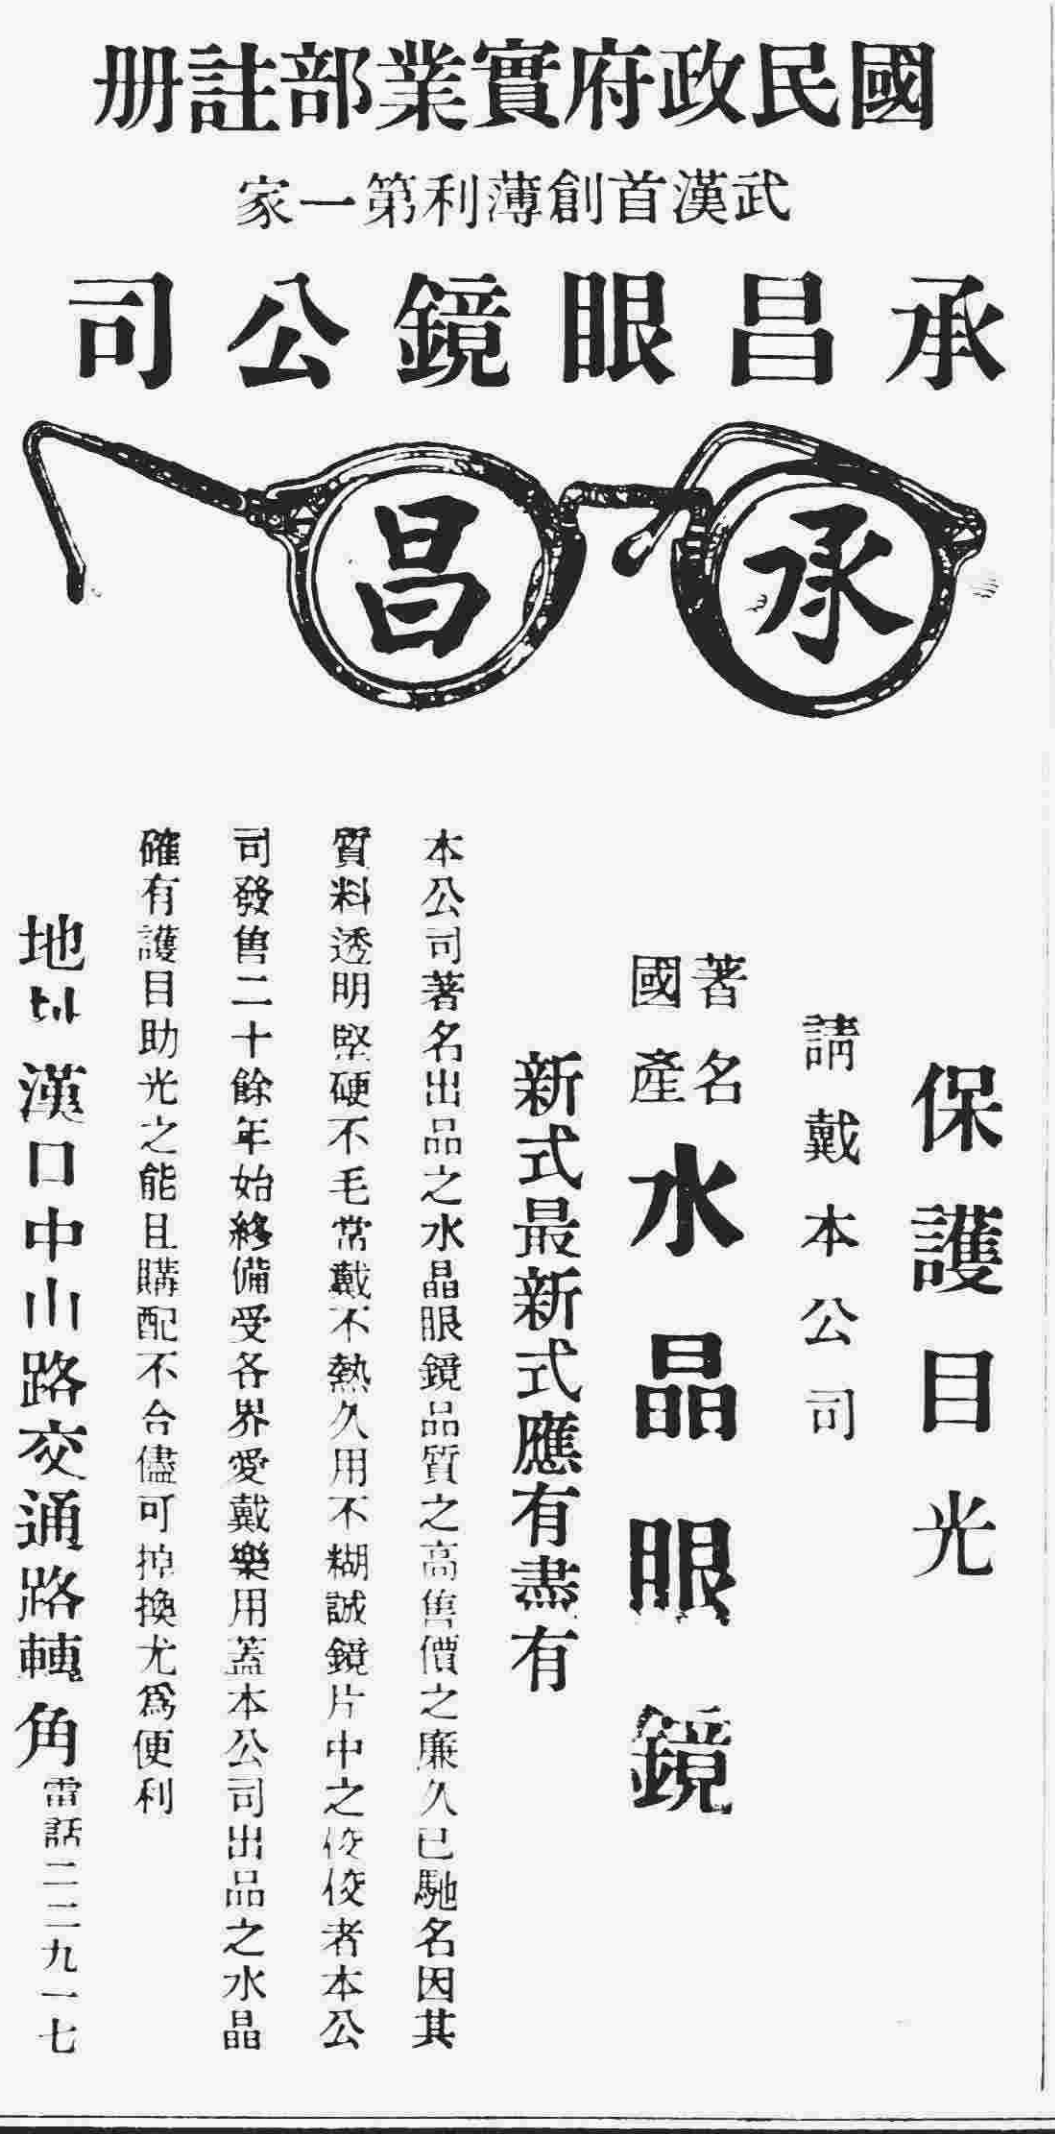 國民政府實業部註册
武漢首創薄利第一家
承昌眼鏡公司
承昌
保護目光
請戴本公司
著名
國產
水晶眼鏡
新式最新式應有盡有
本公司著名出品之水晶眼鏡品質之高售價之廉久已馳名因其
質料透明堅硬不毛常戴不熱久用不糊誠鏡片中之佼佼者本公
司發售二十餘年始終備受各界愛戴樂用蓋本公司出品之水晶
確有護目助光之能且購配不合儘可掉換尤為便利
地址漢口中山路交通路轉角電話二二九一七